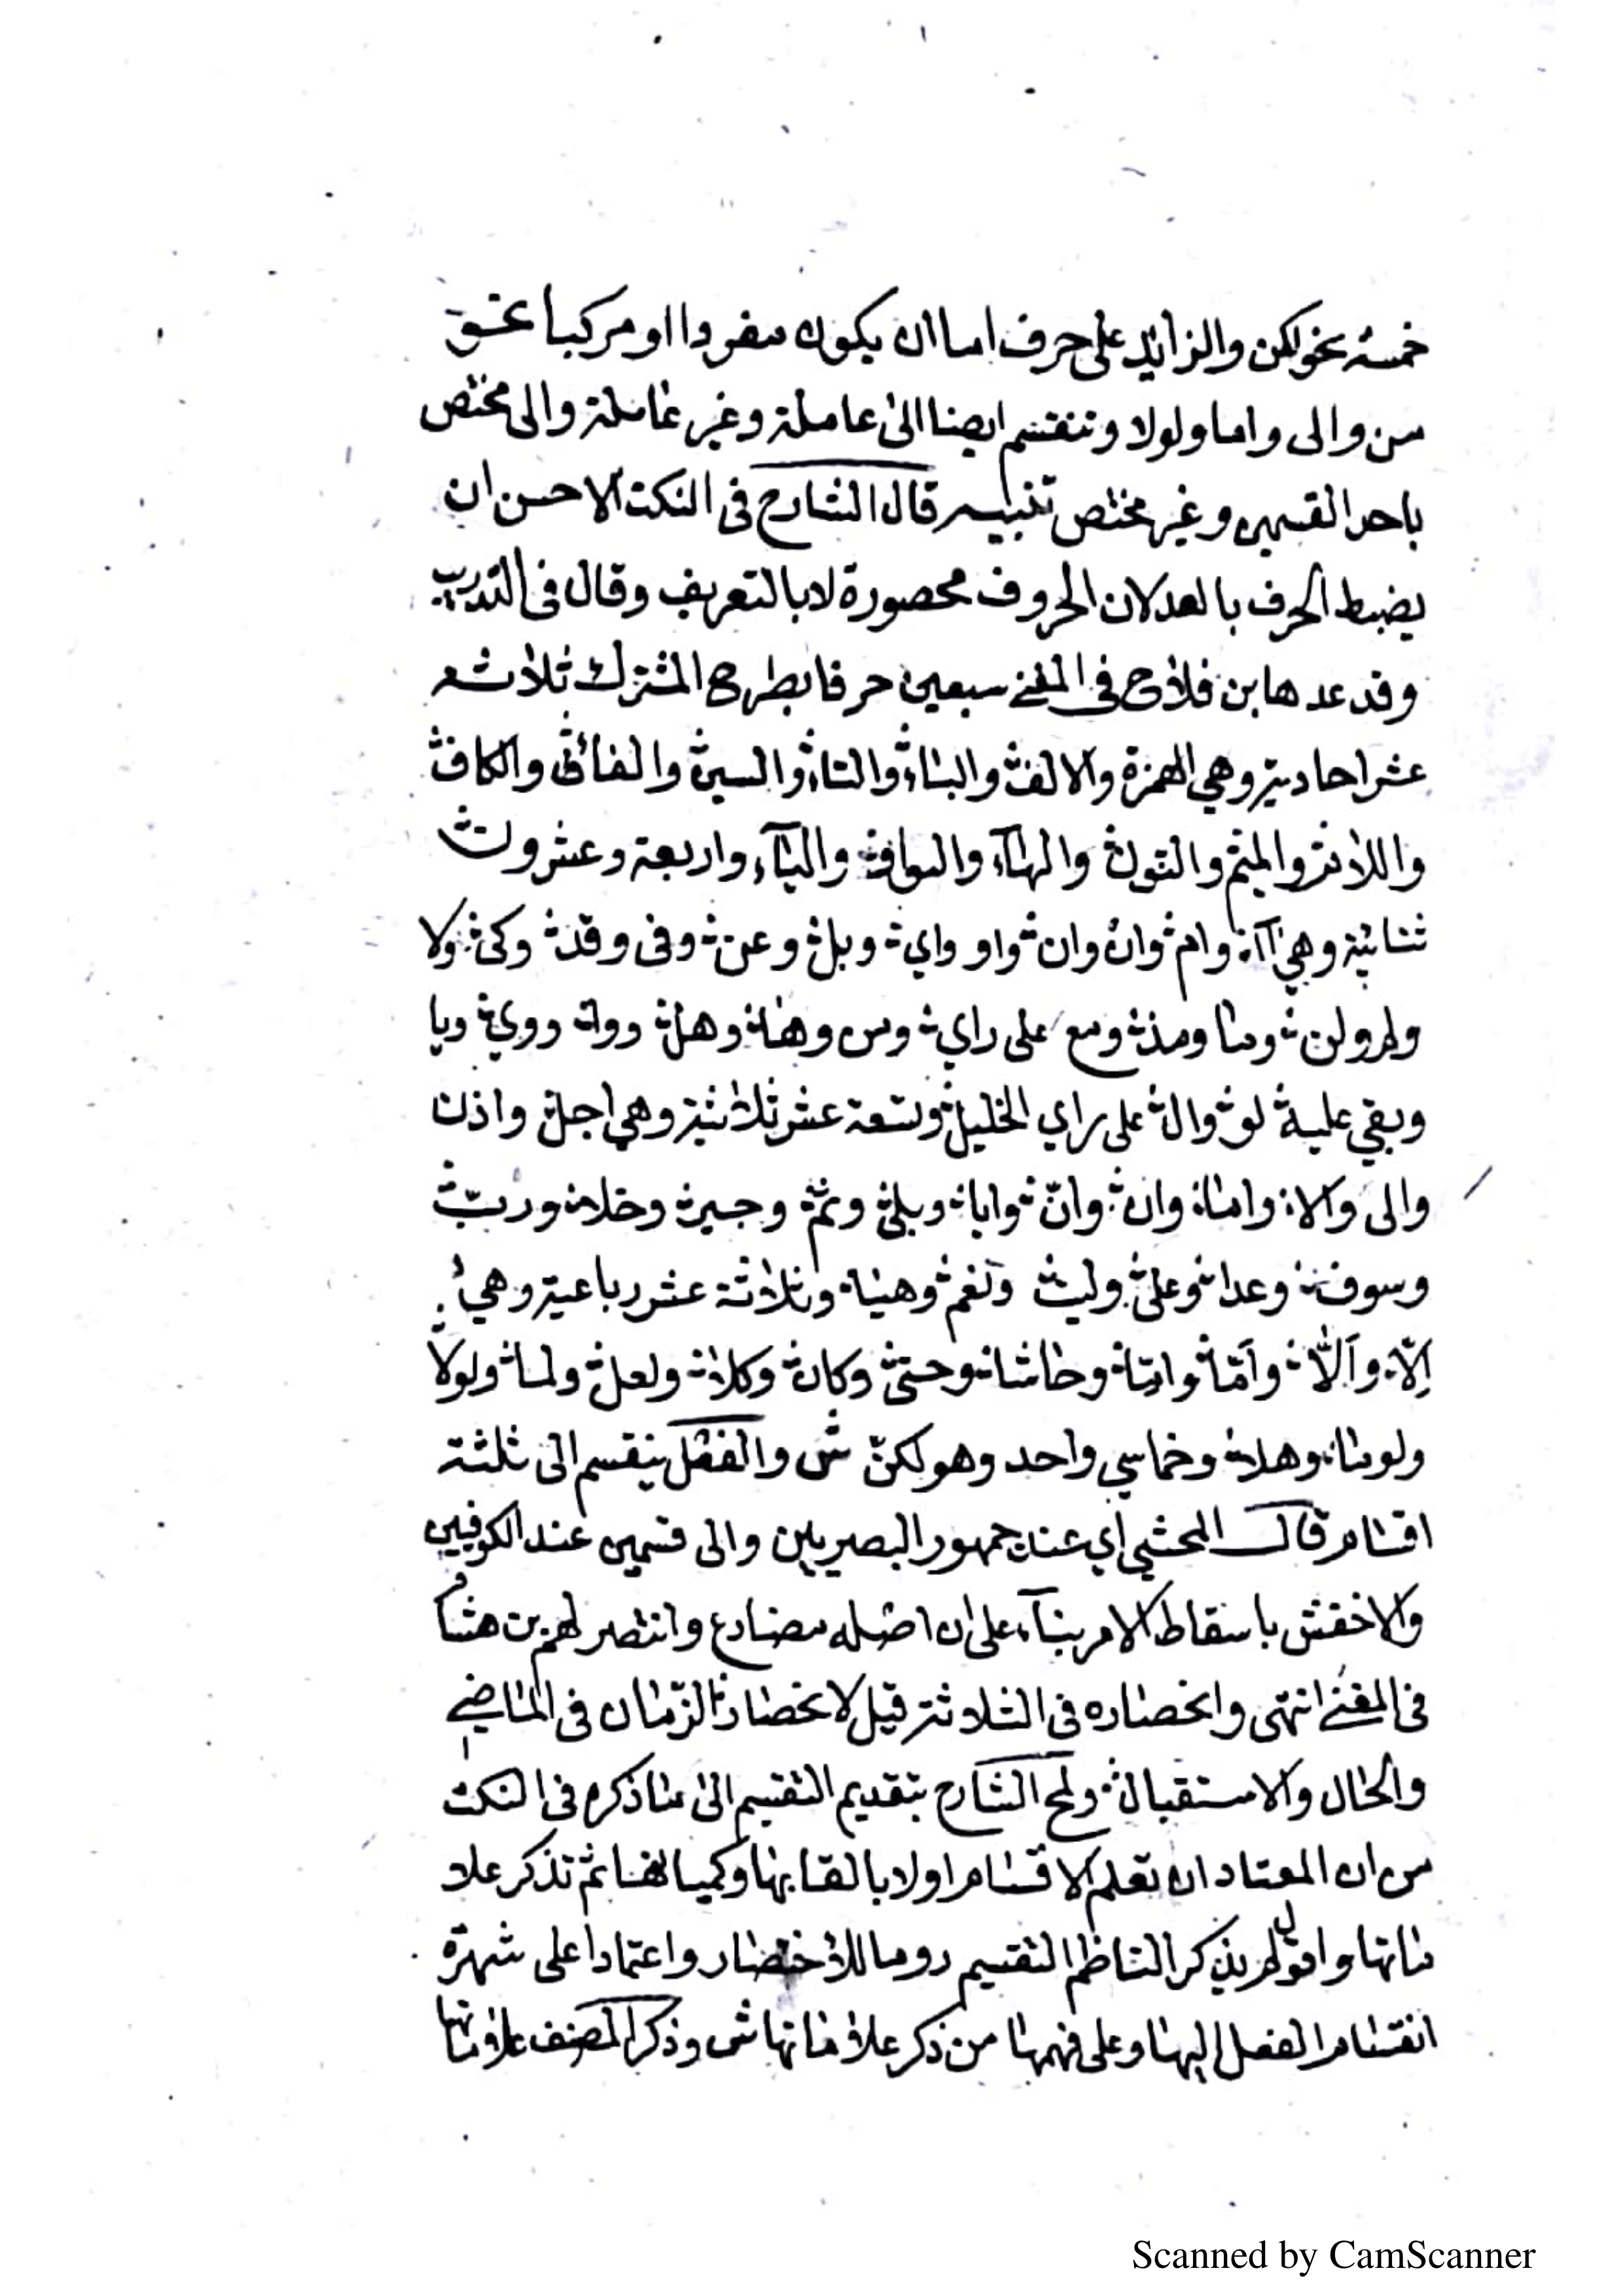 خمسة نحو لكن والزايد على حرف اما ان يكون مفردا او مركبا نحو
من والى واما ولولا وتنقسم ايضا الى عاملة وغير عاملة والى مختص
باحد القسمين وغير مختص تنبيه قال الشارح فى النكت الاحسن ان
يضبط الحرف بالعد لان الحروف محصورة لا بالتعريف وقال فى التدريب
وقد عدها بن فلاح فى المغنى سبعين حرفا بطرح المشترك ثلاثه
عشر احادية وهي الهمزة والالف والباء والتاء والسين والفاء والكاف
واللام والميم والنون والهاء والواو والياء واربعة وعشرون
ثنائية وهي آ وام وان وان واو واي وبل وعن وفى وقد وكى ولا
ولم ولن وما ومذ ومع على راي ومن وها وهل ووا ووي ويا
وبقي عليه لو وال على راي الخليل وتسعة عشر ثلاثية وهي اجل واذن
والى والا واما وان وانّ وايا وبلى وثم وجير وخلا وربّ
وسوف وعدا وعلى وليت ونعم وهيا وثلاثة عشر رباعية وهي
اِلّا واَلّا واَمّا واِمّا وحاشا وحتى وكان وكلا ولعل ولما ولولا
ولوما وهلا وخماسي واحد وهو لكنّ ش والفعل ينقسم الى ثلثة
اقسام قال المحشي اي عند جمهور البصريين والى قسمين عند الكوفيين
والاخفش باسقاط الامر بناء على ان اصله مضارع وانتصر لهم بن هشام
فى المغنى انتهى وانحصاره فى الثلاثة قيل لانحصار الزّمان فى الماضي
والحال والاستقبال ولمح الشارح بتقديم التقسيم الى ما ذكره فى النكت
من ان المعتاد ان تعلم الاقسام اولا بالقابها وكمياتها ثم تذكر علا
ماتها واقول لم يذكر الناظم التقسيم روما للاختصار واعتمادا على شهرة
انقسام الفعل اليها وعلى فهمها من ذكر علاماتها ش وذكر المصنف علاماتها
Scanned by CamScanner